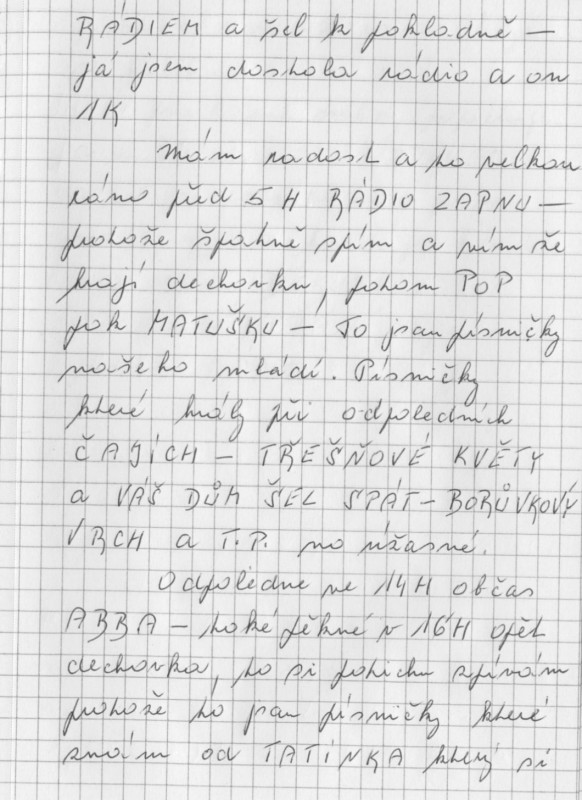 RÁDIEM a šel k pokladně –
já jsem dostala rádio a on
1K
Mám radost a to velkou
ráno před 5 H RÁDIO ZAPNU –
protože špatně spím a vím že
hrají dechovku, potom POP
pak MATUŠKU – To jsou písničky
našeho mládí. Písničky
které hráli při odpoledních
ČAJÍCH – TŘEŠŇOVÉ KVĚTY
a VÁŠ DŮM ŠEL SPÁT – BORŮVKOVÝ
VRCH a T.P. no úžasné.
Odpoledne ve 14H občas
ABBA – také pěkné v 16H opět
dechovka, to si potichu zpívám
protože to jsou písničky které
znám od TATÍNKA který si